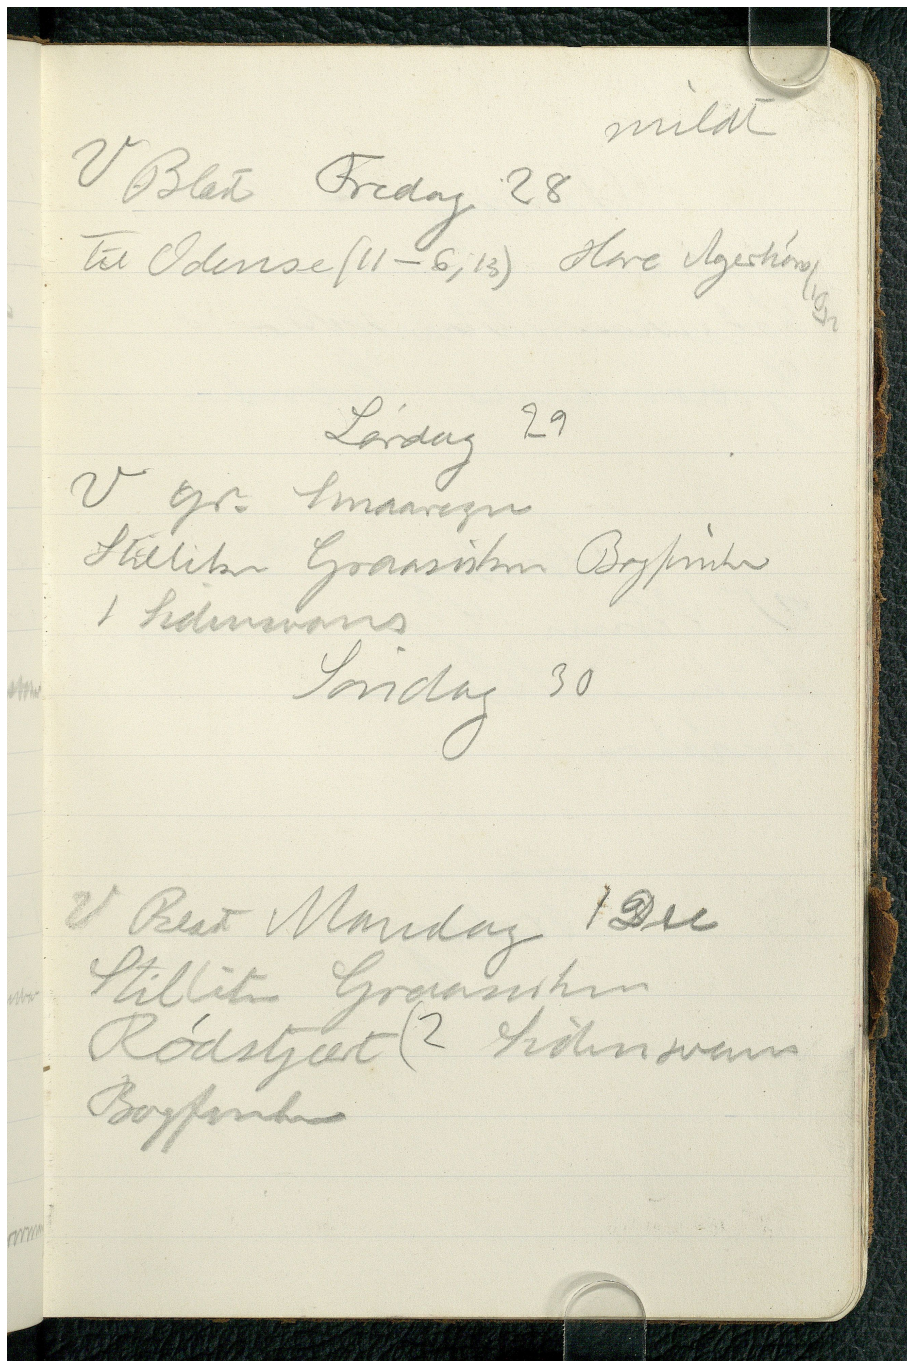 mildt
V Blæst Fredag 28
til Odense (11–6,13) Hare Agerhøns (10
Lørdag 29
V gr. Smaaregn
Stillitser Graasisken Bogfinke
1 Sidensvans
Søndag 30
V Blæst Mandag 1 Dec
Stillits Graasisken
Rødstjært (2 Sidensvans
Bogfinke